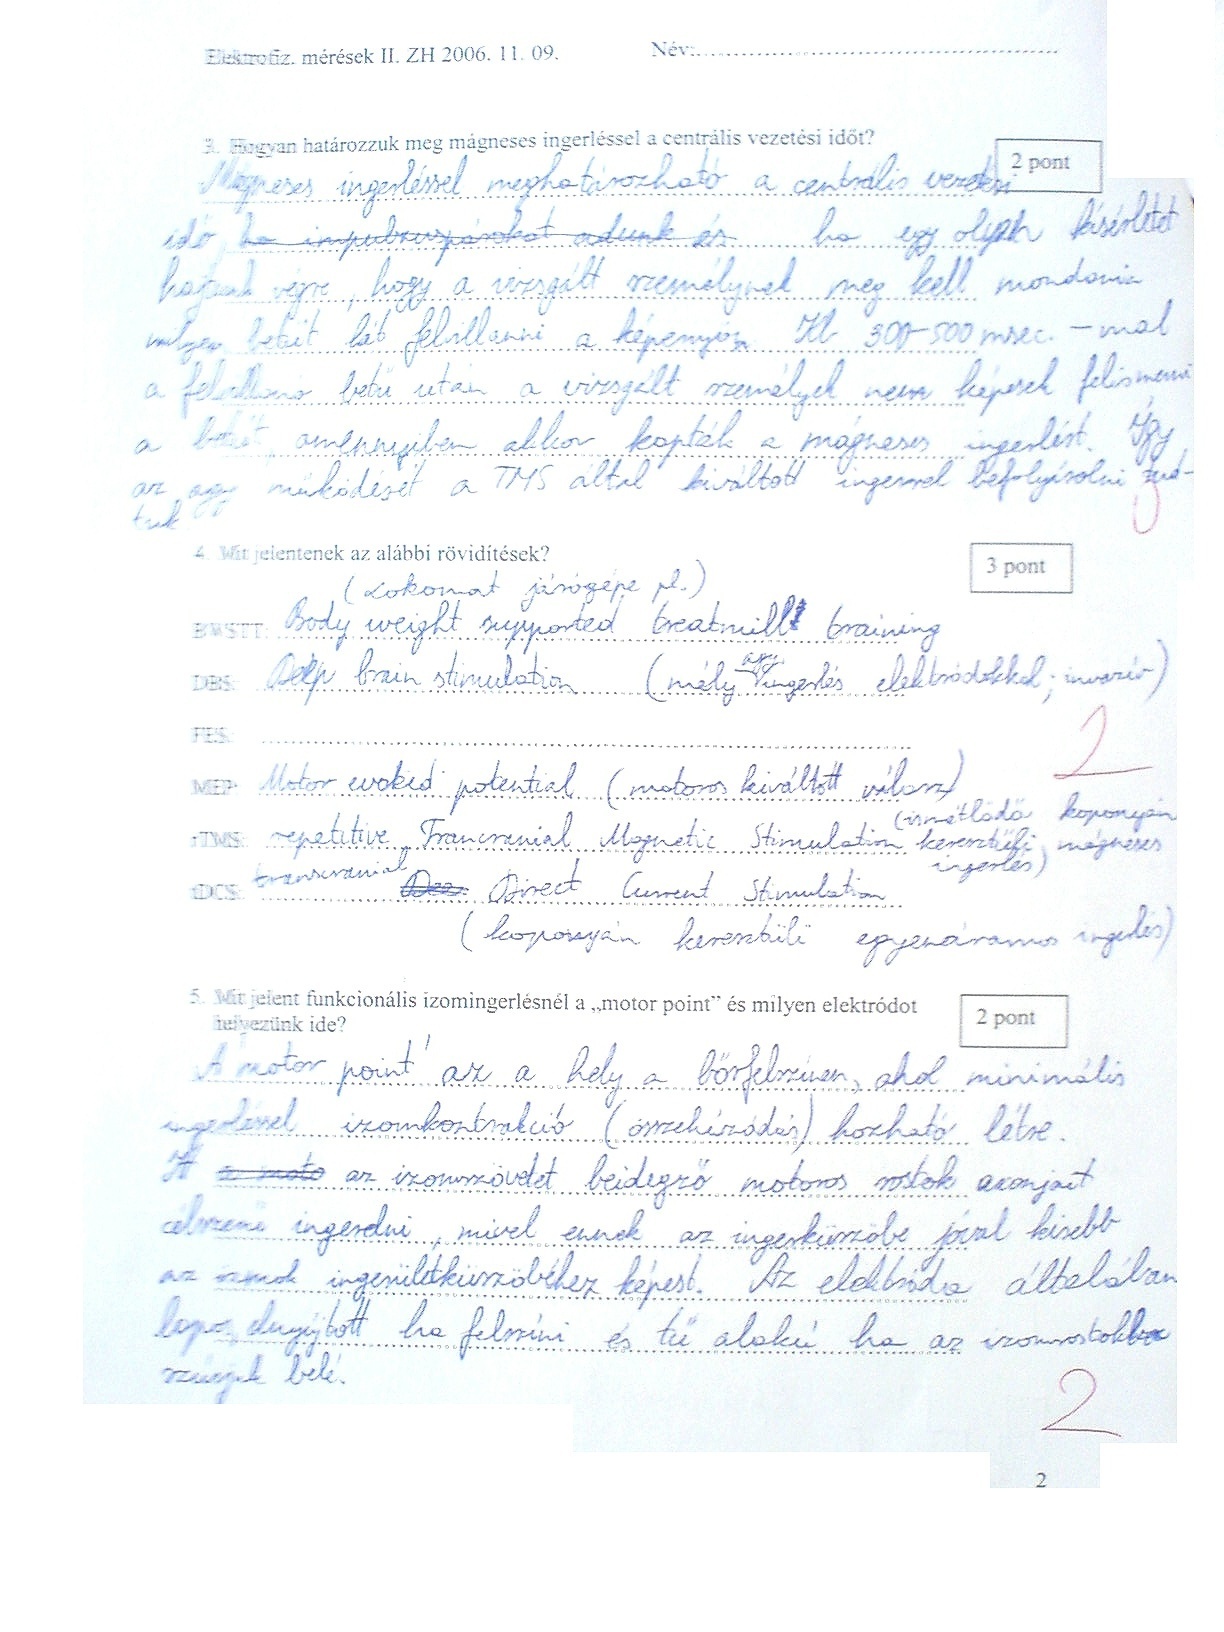 Elektrofiz. mérések II. ZH 2006. 11. 09. Név:
3. Hogyan határozzuk meg mágneses ingerléssel a centrális vezetési időt?
2 pont
Mágneses ingerléssel meghatározható a centrális vezetési
idő, ha impulzuspárokat adunk és ha egy olyan kísérletet
hajtunk végre, hogy a vizsgált személynek meg kell mondania
milyen betűt lát felvillanni a képernyőn. Itt 300-500 msec. -mal
a felvillanó betű után a vizsgált személyek nem képesek felismerni
a betűt, amennyiben akkor kapták a mágneses ingerlést. Így
az agy működését a TMS által kiváltott ingerrel befolyásolni tud-
tuk
0
4. Mit jelentenek az alábbi rövidítések?
3 pont
(Lokomat járógépe pl.)
BWSTT: Body weight supported treatmill training
DBS: Deep brain stimulation (mély agyi ingerlés elektródokkal; invazív)
FES:
2
MEP: Motor evoked potential (motoros kiváltott válasz)
rTMS: repetitive Trancranial Magnetic Stimulation (ismétlődő koponyán
keresztüli mágneses
ingerlés)
tDCS: transcranial Direct Current Stimulation
(koponyán keresztüli egyenáramos ingerlés)
5. Mit jelent funkcionális izomingerlésnél a „motor point” és milyen elektródot
helyezünk ide?
2 pont
A "motor point" az a hely a bőrfelszínen, ahol minimális
ingerléssel izomkontrakció (összehúzódás) hozható létre.
Itt a moto az izomszövetet beidegző motoros rostok axonjait
célszerű ingerelni, mivel ennek az ingerküszöbe jóval kisebb
az izmok ingerületküszöbéhez képest. Az elektróda általában
lapos, elnyújtott ha felszíni és tű alakú ha az izomrostokba
szúrjuk belé.
2
2